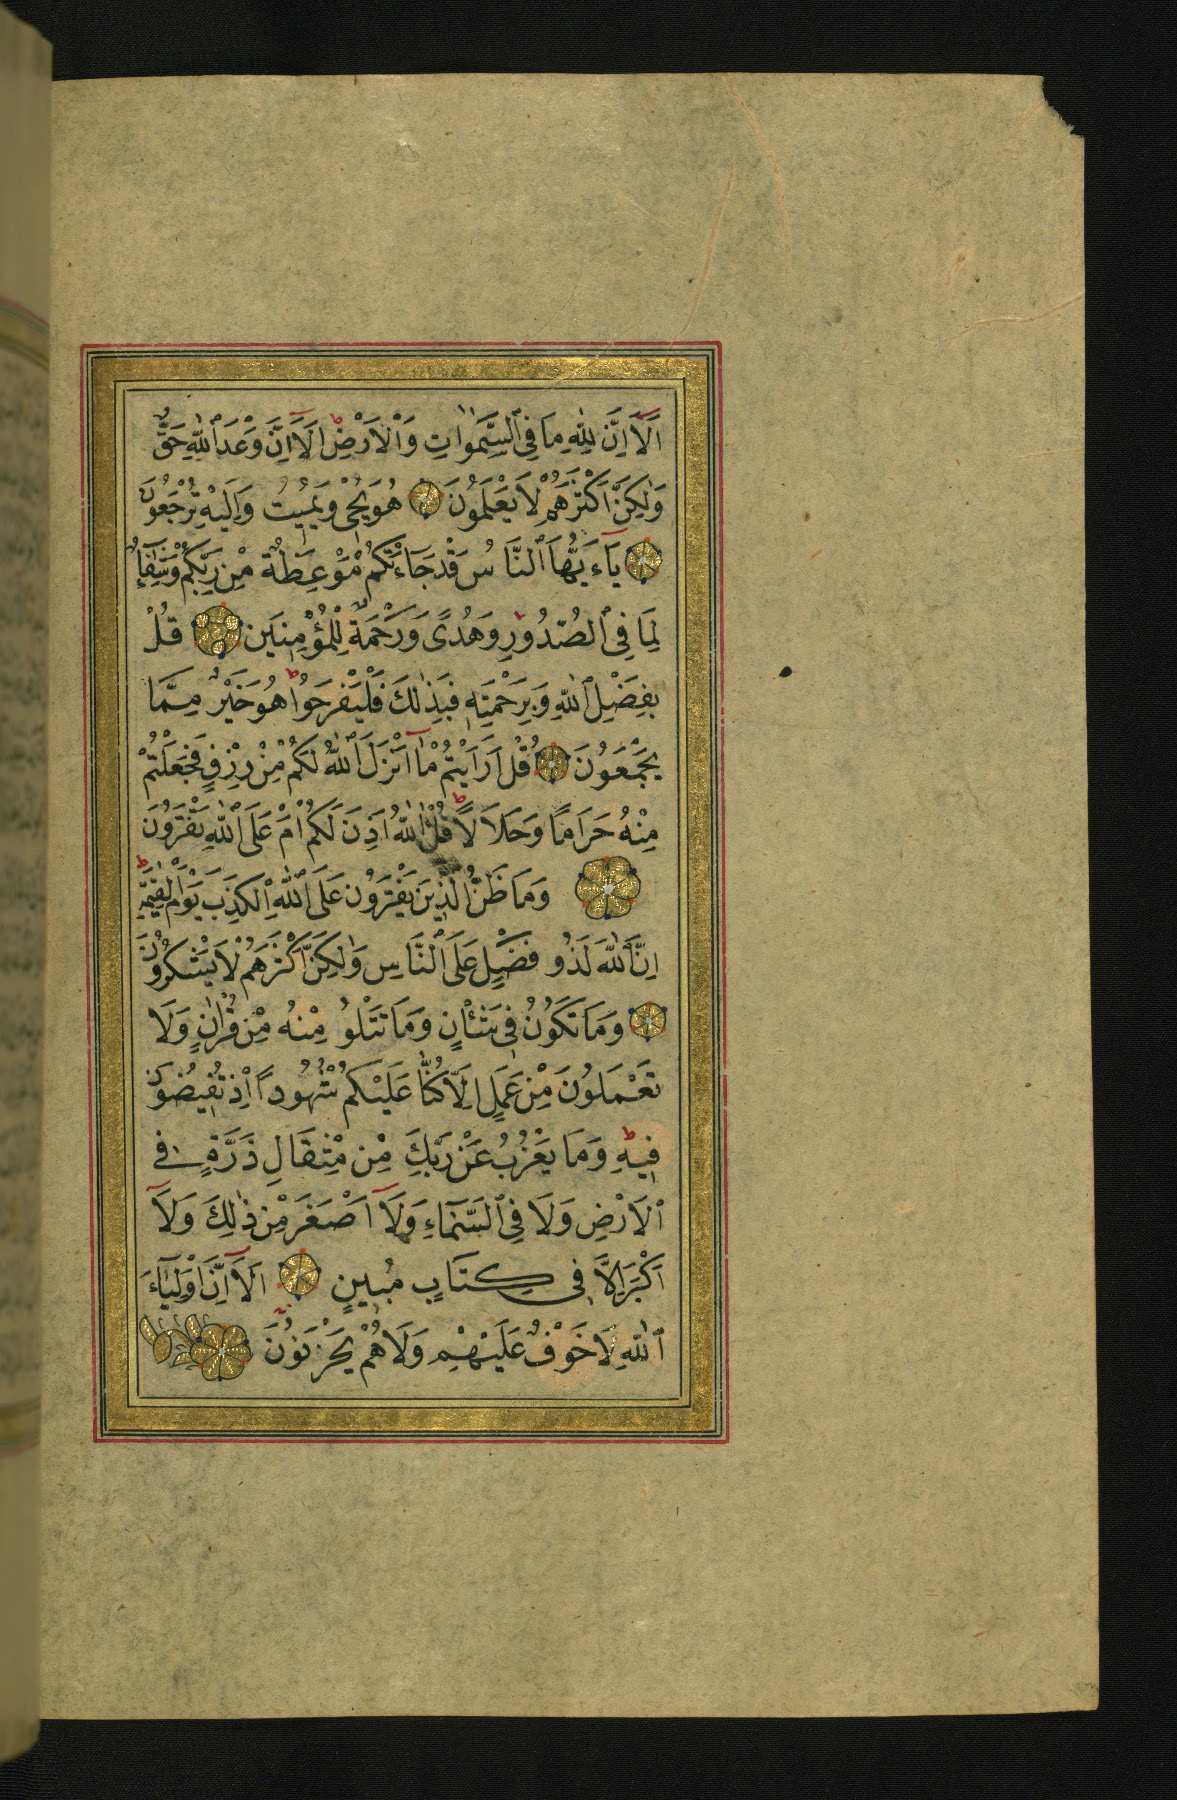 اَلَآ اِنَّ لِلّٰهِ مَا فِي ٱلسَّمٰوَاتِ وَٱلْاَرْضِۜ اَلَآ اِنَّ وَعْدَ ٱللّٰهِ حَقٌّ
وَلٰكِنَّ اَكْثَرَهُمْ لَا يَعْلَمُونَ هُوَ يُحْيٖ وَيُمٖيتُ وَاِلَيْهِ تُرْجَعُونَ
يَآءَيُّهَا ٱلنَّاسُ قَدْ جَاءَتْكُمْ مَوْعِظَةٌ مِنْ رَبِّكُمْ وَشِفَآءٌ
لِمَا فِي ٱلصُّدُورِ وَهُدًى وَرَحْمَةٌ لِلْمُؤْمِنٖينَ قُلْ
بِفَضْلِ ٱللّٰهِ وَبِرَحْمَتِهٖ فَبِذٰلِكَ فَلْيَفْرَحُواۜ هُوَ خَيْرٌ مِمَّا
يَجْمَعُونَ قُلْ اَرَاَيْتُمْ مَآ اَنْزَلَ ٱللّٰهُ لَكُمْ مِنْ رِزْقٍ فَجَعَلْتُمْ
مِنْهُ حَرَامًا وَحَلَالًاۜ قُلْ آٰللّٰهُ اَذِنَ لَكُمْ اَمْ عَلَى ٱللّٰهِ تَفْتَرُونَ
وَمَا ظَنُّ ٱلَّذٖينَ يَفْتَرُونَ عَلَى ٱللّٰهِ ٱلْكَذِبَ يَوْمَ ٱلْقِيٰمَةِۜ
اِنَّ ٱللّٰهَ لَذُو فَضْلٍ عَلَى ٱلنَّاسِ وَلٰكِنَّ اَكْثَرَهُمْ لَا يَشْكُرُونَ
وَمَا تَكُونُ فٖي شَأْنٍ وَمَا تَتْلُوا مِنْهُ مِنْ قُرْاٰنٍ وَلَا
تَعْمَلُونَ مِنْ عَمَلٍ اِلَّا كُنَّا عَلَيْكُمْ شُهُودًا اِذْ تُفٖيضُونَ
فٖيهِۜ وَمَا يَعْزُبُ عَنْ رَبِّكَ مِنْ مِثْقَالِ ذَرَّةٍ فِي
ٱلْاَرْضِ وَلَا فِي ٱلسَّمَآءِ وَلَآ اَصْغَرَ مِنْ ذٰلِكَ وَلَآ
اَكْبَرَ اِلَّا فٖي كِتَابٍ مُبٖينٍ اَلَآ اِنَّ اَوْلِيَآءَ
ٱللّٰهِ لَا خَوْفٌ عَلَيْهِمْ وَلَا هُمْ يَحْزَنُونَ